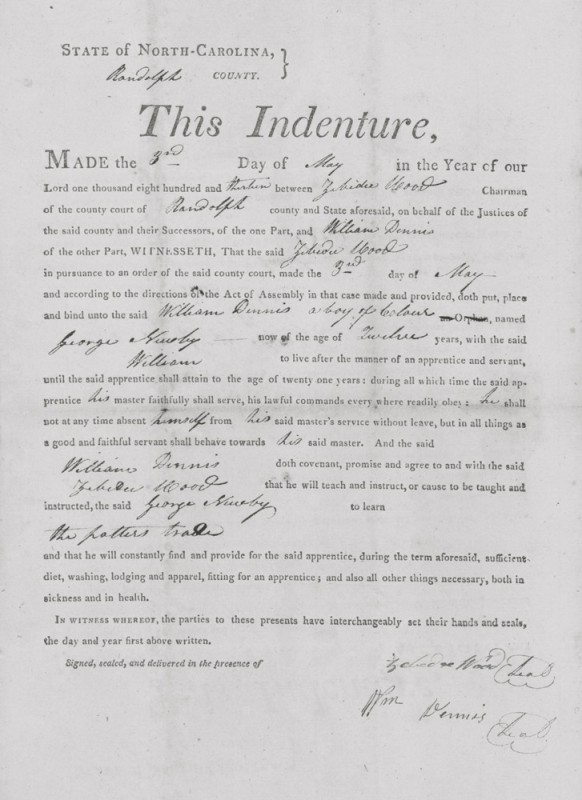 STATE of NORTH-CAROLINA,
Randolph COUNTY.
This Indenture,
MADE the 3rd Day of May in the Year of our
Lord one thousand eight hundred and thirteen between Zebidee Wood Chairman
of the county court of Randolph county and State aforesaid, on behalf of the Justices of
the said county and their Successors, of the one Part, and William Dennis
of the other Part, WITNESSETH, That the said Zebidee Wood
in pursuance to an order of the said county court, made the 3rd day of May
and according to the directions of the Act of Assembly in that case made and provided, doth put, place
and bind unto the said William Dennis a boy of Colour an Orphan, named
George Newby now of the age of Twelve years, with the said
William to live after the manner of an apprentice and servant,
until the said apprentice shall attain to the age of twenty one years: during all which time the said ap-
prentice his master faithfully shall serve, his lawful commands every where readily obey: he shall
not at any time absent himself from his said master's service without leave, but in all things as
a good and faithful servant shall behave towards his said master. And the said
William Dennis doth covenant, promise and agree to and with the said
Zebidee Wood that he will teach and instruct, or cause to be taught and
instructed, the said George Newby to learn
the potters trade
and that he will constantly find and provide for the said apprentice, during the term aforesaid, sufficient
diet, washing, lodging and apparel, fitting for an apprentice; and also all other things necessary, both in
sickness and in health.
IN WITNESS WHEREOF, the parties to these presents have interchangeably set their hands and seals,
the day and year first above written.
Signed, sealed, and delivered in the presence of
Zebidee Wood (Seal)
Wm Dennis (Seal)